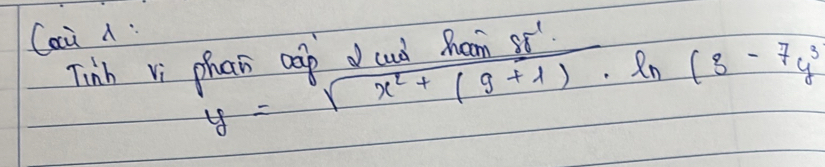 Câu 1:
Tính vi phân cấp 2 của hàm số:
y = √(x² + (9 + 1)) . ln (3 - 7y³